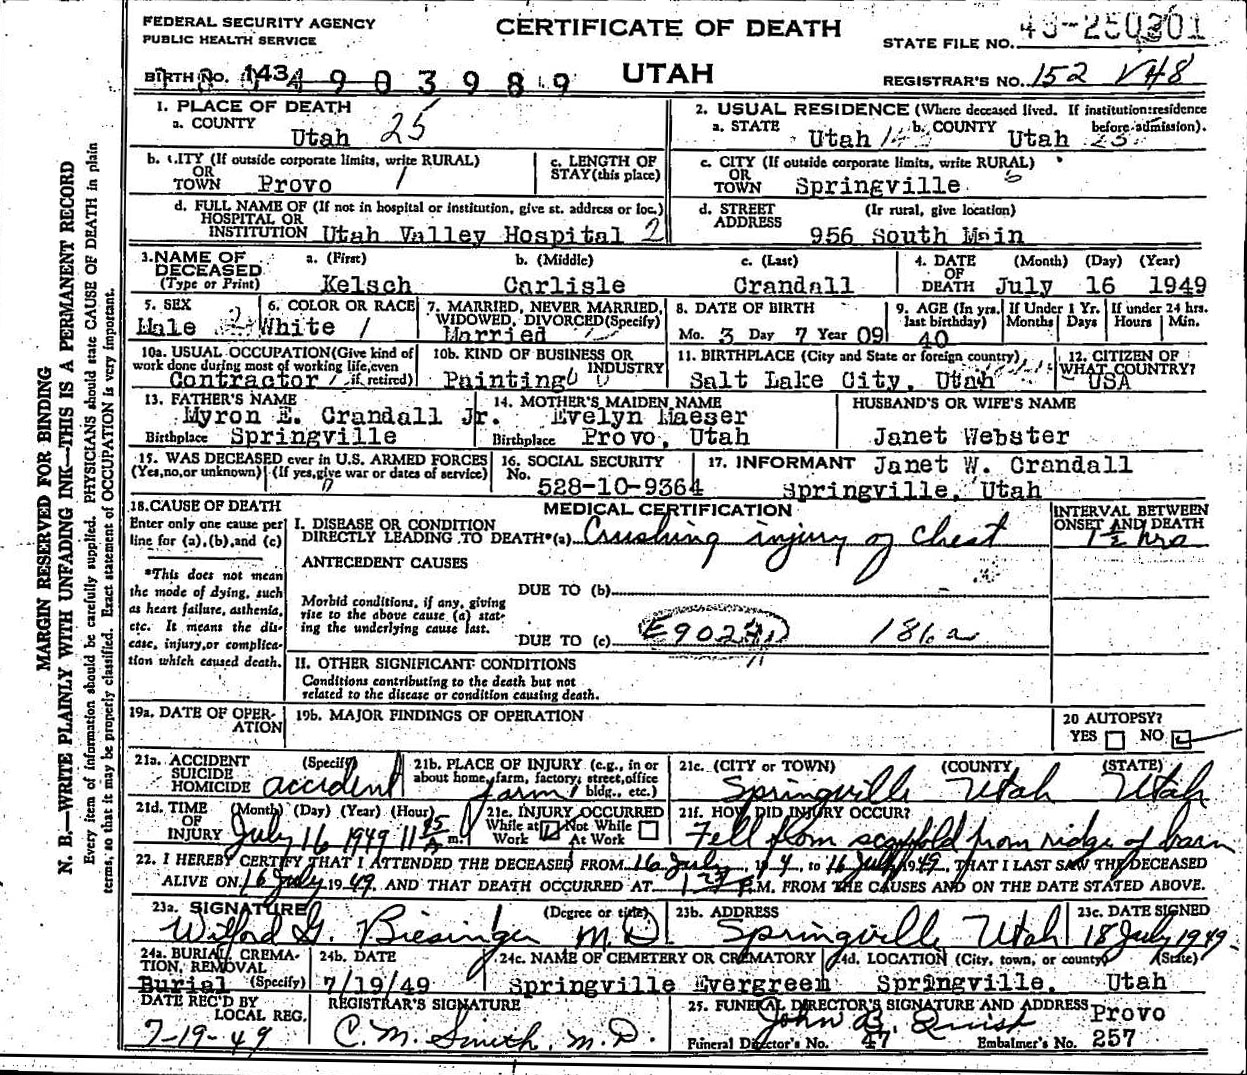 FEDERAL SECURITY AGENCY
PUBLIC HEALTH SERVICE
CERTIFICATE OF DEATH
STATE FILE NO.
BIRTH NO. 143
UTAH
REGISTRAR'S NO. 152 VH8
1. PLACE OF DEATH
a. COUNTY Utah 25
2. USUAL RESIDENCE (Where deceased lived. If institution:residence before admission).
a. STATE Utah b. COUNTY Utah
b. CITY (If outside corporate limits, write RURAL) OR TOWN Provo 1
c. LENGTH OF STAY (this place)
c. CITY (If outside corporate limits, write RURAL) OR TOWN Springville
d. FULL NAME OF (If not in hospital or institution, give st. address or loc.) HOSPITAL OR INSTITUTION Utah Valley Hospital 2
d. STREET ADDRESS (If rural, give location) 956 South Main
3. NAME OF DECEASED (Type or Print) a. (First) Kelsch b. (Middle) Carlisle c. (Last) Crandall
4. DATE OF DEATH (Month) (Day) (Year) July 16 1949
5. SEX Male
6. COLOR OR RACE White 1
7. MARRIED, NEVER MARRIED, WIDOWED, DIVORCED (Specify) Married
8. DATE OF BIRTH Mo. 3 Day 7 Year 09
9. AGE (In yrs. last birthday) 40
If Under 1 Yr. Months Days
If under 24 hrs. Hours Min.
10a. USUAL OCCUPATION (Give kind of work done during most of working life, even if retired) Contractor
10b. KIND OF BUSINESS OR INDUSTRY Painting
11. BIRTHPLACE (City and State or foreign country) Salt Lake City, Utah
12. CITIZEN OF WHAT COUNTRY? USA
13. FATHER'S NAME Myron E. Crandall Jr.
Birthplace Springville
14. MOTHER'S MAIDEN NAME Evelyn Maeser
Birthplace Provo, Utah
HUSBAND'S OR WIFE'S NAME
Janet Webster
15. WAS DECEASED ever in U.S. ARMED FORCES (Yes, no, or unknown) (If yes, give war or dates of service)
16. SOCIAL SECURITY No. 528-10-9364
17. INFORMANT Janet W. Crandall
Springville, Utah
18. CAUSE OF DEATH
Enter only one cause per line for (a), (b), and (c)
*This does not mean the mode of dying, such as heart failure, asthenia, etc. It means the disease, injury, or complication which caused death.
MEDICAL CERTIFICATION
INTERVAL BETWEEN ONSET AND DEATH
I. DISEASE OR CONDITION DIRECTLY LEADING TO DEATH*(a) Crushing injury of chest 1½ hrs
ANTECEDENT CAUSES
DUE TO (b)
Morbid conditions, if any, giving rise to the above cause (a) stating the underlying cause last.
DUE TO (c) 186a
II. OTHER SIGNIFICANT CONDITIONS
Conditions contributing to the death but not related to the disease or condition causing death.
19a. DATE OF OPERATION
19b. MAJOR FINDINGS OF OPERATION
20 AUTOPSY?
YES NO
21a. ACCIDENT SUICIDE HOMICIDE (Specify) accident
21b. PLACE OF INJURY (e.g., in or about home, farm, factory, street, office bldg., etc.) farm
21c. (CITY OR TOWN) (COUNTY (STATE) Springville Utah Utah
21d. TIME OF INJURY (Month) (Day) (Year) (Hour) July 16 1949 m.
21e. INJURY OCCURRED While at Work Not While At Work
21f. HOW DID INJURY OCCUR?
Fell from scaffold from ridge of barn
22. I HEREBY CERTIFY THAT I ATTENDED THE DECEASED FROM 16 July, 19 4, TO 16 July, 1949, THAT I LAST SAW THE DECEASED
ALIVE ON 16 July 1949 AND THAT DEATH OCCURRED AT P.M. FROM THE CAUSES AND ON THE DATE STATED ABOVE.
23a. SIGNATURE (Degree or title) Wilford G. Biesinger M.D.
23b. ADDRESS Springville Utah
23c. DATE SIGNED 18 July 1949
24a. BURIAL, CREMATION, REMOVAL (Specify) Burial
24b. DATE 7/19/49
24c. NAME OF CEMETERY OR CREMATORY Springville Evergreen
24d. LOCATION (City, town, or county) (State) Springville, Utah
DATE REC'D BY LOCAL REG. 7-19-49
REGISTRAR'S SIGNATURE C. M. Smith, M.D.
25. FUNERAL DIRECTOR'S SIGNATURE AND ADDRESS Provo
Funeral Director's No. 47 Embalmer's No. 257
MARGIN RESERVED FOR BINDING
N. B.—WRITE PLAINLY WITH UNFADING INK—THIS IS A PERMANENT RECORD
Every item of information should be carefully supplied. PHYSICIANS should state CAUSE OF DEATH in plain
terms, so that it may be properly classified. Exact statement of OCCUPATION is very important.